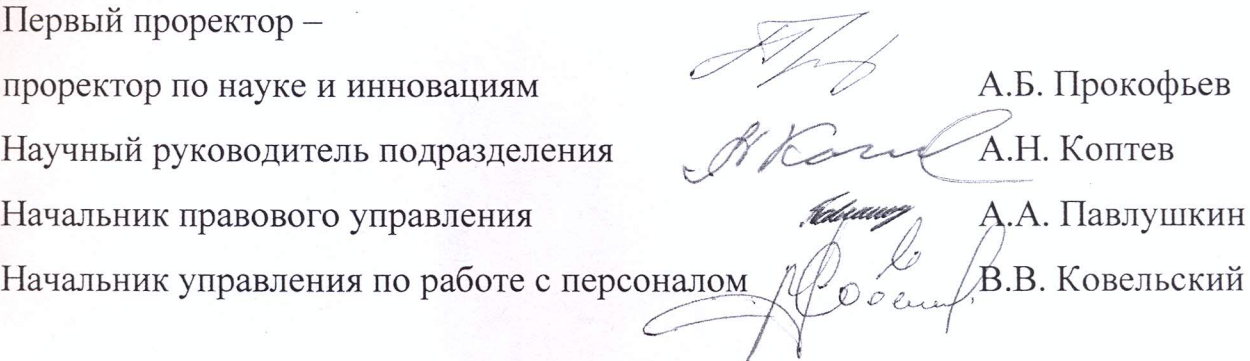 Первый проректор –
проректор по науке и инновациям А.Б. Прокофьев
Научный руководитель подразделения А.Н. Коптев
Начальник правового управления А.А. Павлушкин
Начальник управления по работе с персоналом В.В. Ковельский